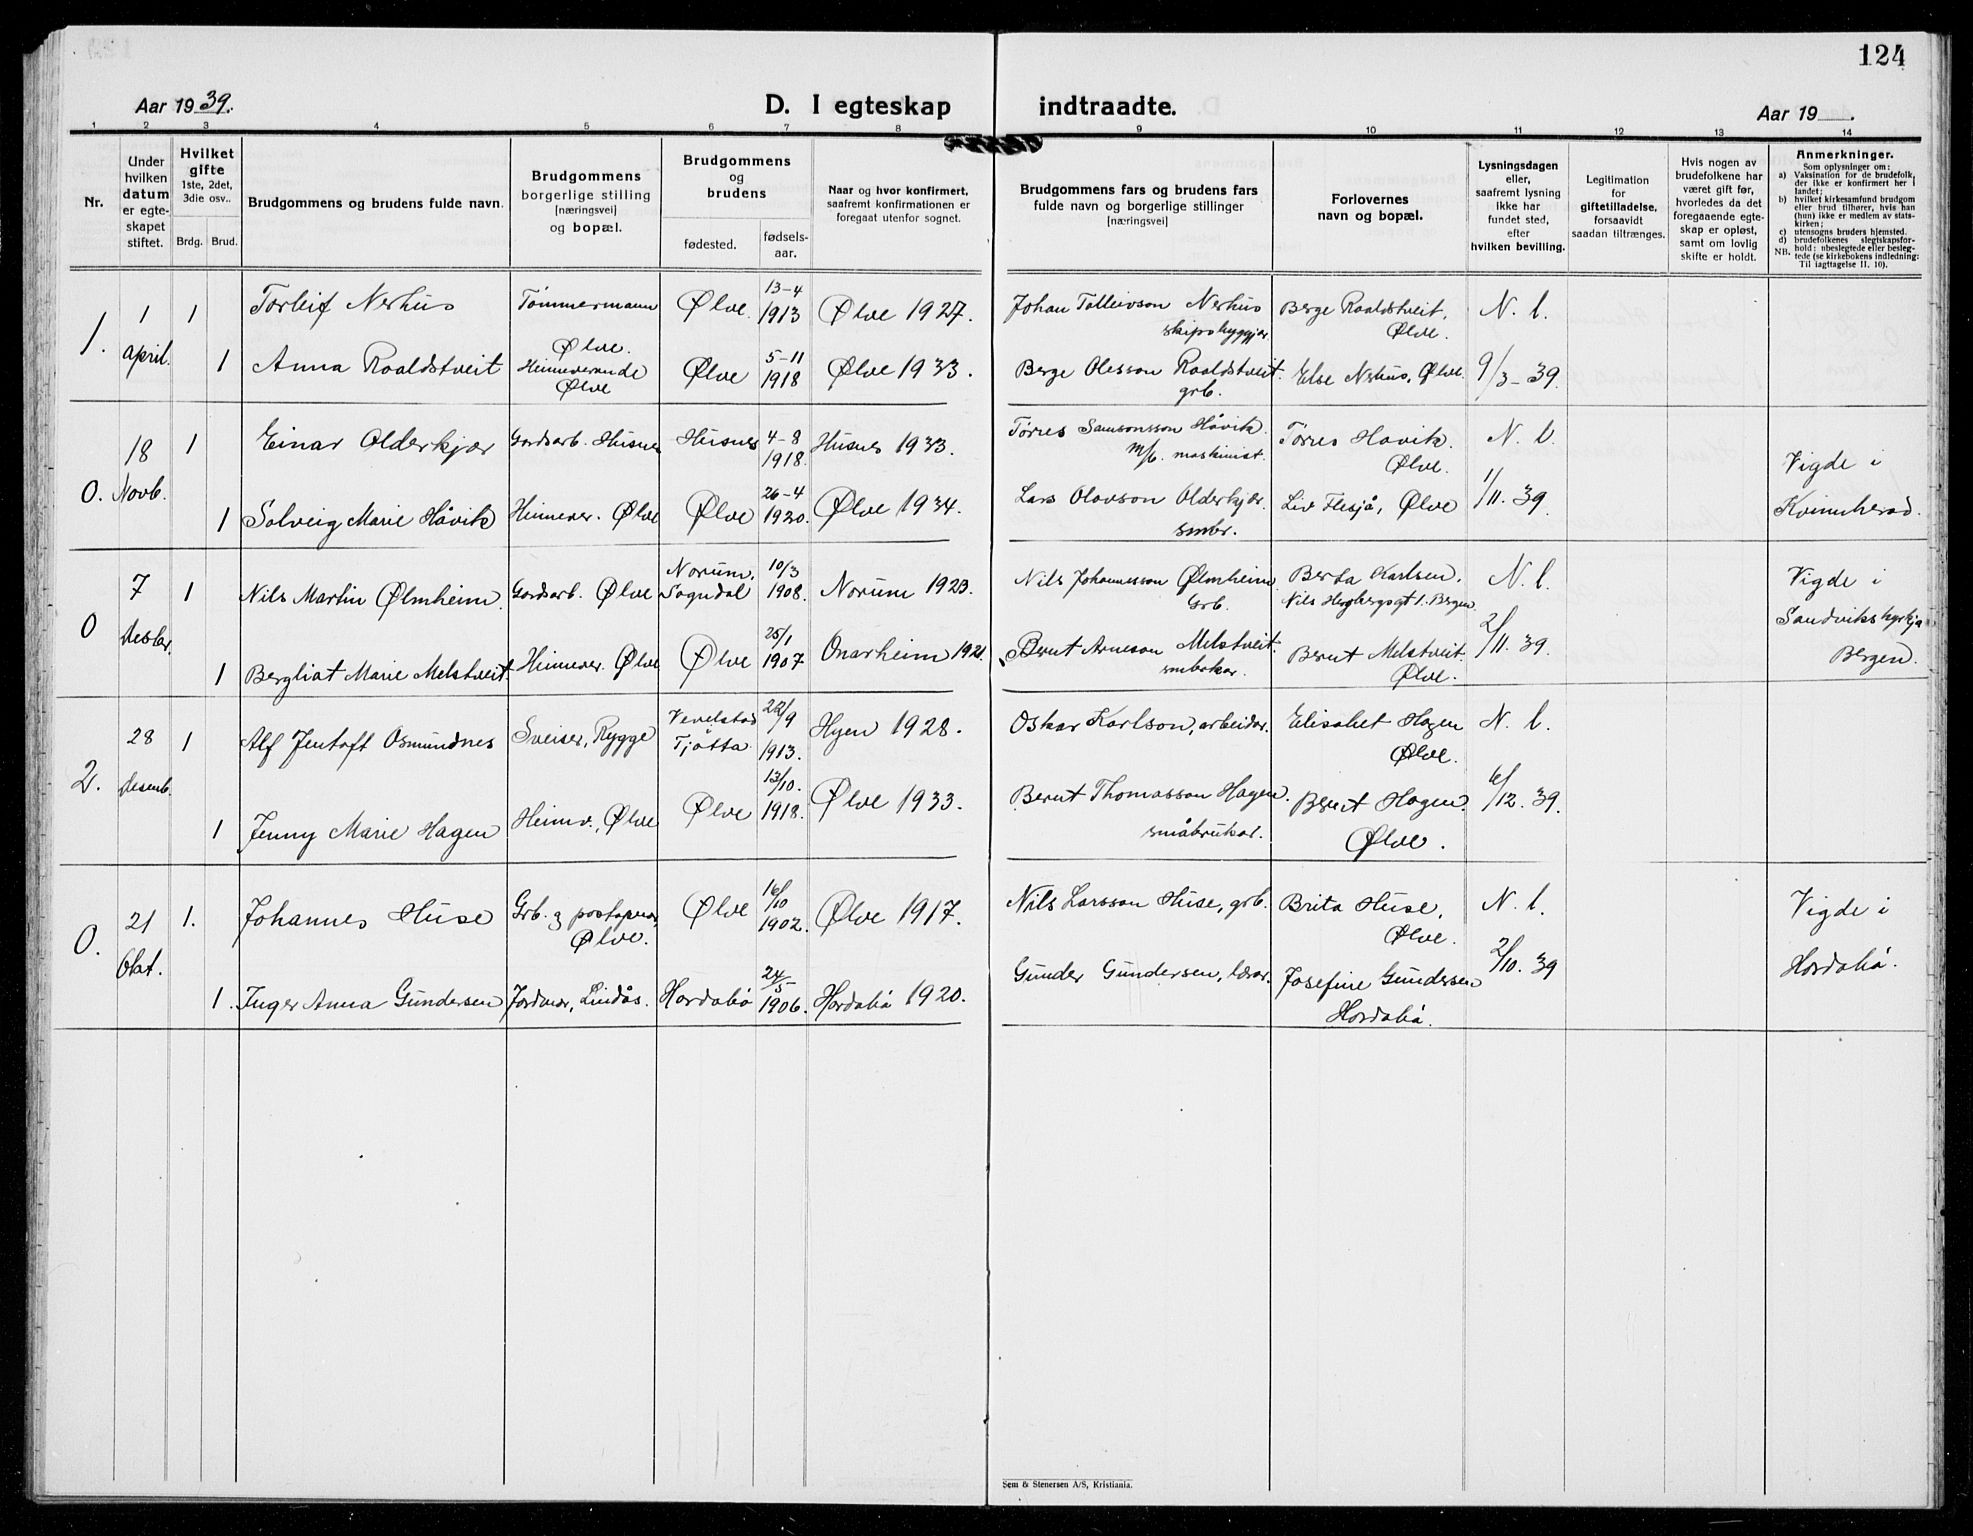 124
Aar 1939.
D. I egteskap indtraadte.
Aar 19
1 2 3 4 5 6 7 8 9 10 11 12 13 14
Nr.
Under hvilken datum er egte-skapet stiftet.
Hvilket gifte 1ste, 2det, 3die osv..
Brdg. Brud.
Brudgommens og brudens fulde navn.
Brudgommens borgerlige stilling [næringsvei] og bopæl.
Brudgommens og brudens
fødested.
fødsels-aar.
Naar og hvor konfirmert, saafremt konfirmationen er foregaat utenfor sognet.
Brudgommens fars og brudens fars fulde navn og borgerlige stillinger [næringsvei]
Forlovernes navn og bopæl.
Lysningsdagen eller, saafremt lysning ikke har fundet sted, efter hvilken bevilling.
Legitimation for giftetilladelse, forsaavidt saadan tiltrænges.
Hvis nogen av brudefolkene har været gift før, hvorledes da det foregaaende egte-skap er opløst, samt om lovlig skifte er holdt.
Anmerkninger.
Som oplysninger om:
a) Vaksination for de brudefolk, der ikke er konfirmert her i landet;
b) hvilket kirkesamfund brudgom eller brud tilhører, hvis han (hun) ikke er medlem av stats-kirken;
c) utensogns bruders hjemsted.
d) brudefolkenes slegtskapsfor-hold: ubeslegtede eller besleg-tede (se kirkebokens indledning:
NB. Til iagttagelse II. 10).
1. 1 april. 1 Torleif Nerhus Tømmermann Ølve. Ølve. 13-4 1913 Ølve 1927. Johan Tolleivson Nerhus skipsbyggjar Berge Roaldstveit, Ølve. N. l.
1 Anna Roaldstveit Heimeverande Ølve Ølve 5-11 1918 Ølve 1933. Berge Olesson Roaldstveit. grb. Else Nerhus, Ølve. 9/3-39.
0. 18 Novb. 1 Einar Olderkjær Gardsarb. Husnes Husnes 4-8 1918. Husnes 1933. Tørres Samsonsson Håvik. m/b. maskinist. Tørres Håvik. Ølve. N. l. Vigde i Kvinnherad.
1 Solveig Marie Håvik Heimever. Ølve Ølve 26-4 1920. Ølve 1934. Lars Olavson Olderkjær. smbr. Liv Flesjå, Ølve 1/11. 39.
0 7 Desbr. 1 Nils Martin Ølmheim. Gardsarb. Ølve Norum. Sogndal 10/3 1908. Norum 1923. Nils Johannesson Ølmheim Grb. Berta Karlsen. Nils Hergbergsgt 1. Bergen N. l. Vigde i Sandvikskyrkja Bergen.
1 Bergliot Marie Melstveit. Heimever. Ølve Ølve 25/1 1907. Onarheim 1921. Bernt Arneson Melstveit. smbrkar. Bernt Melstveit. Ølve. 2/11. 39.
2. 28 Desemb. 1 Alf Jentoft Osmundnes Sveiser, Rygge Vevelstad Tjøtta. 22/9 1913. Hyen 1928. Oskar Karlson, arbeidar. Elisabet Hagen Ølve. N. l.
1 Jenny Marie Hagen Heimv., Ølve Ølve 13/10. 1918. Ølve 1933. Bernt Thomasson Hagen. småbrukar. Bernt Hagen. Ølve. 6/12. 39.
0. 21 Okt. 1. Johannes Huse Grb. og postopnar, Ølve. Ølve 16/10 1902. Ølve 1917. Nils Larsson Huse, grb. Brita Huse, Ølve. N. l. Vigde i Hordabø.
1. Inger Anna Gundersen Jordmor, Lindås. Hordabø 24/5- 1906. Hordabø 1920. Gunder Gundersen, lærar. Josefine Gundersen Hordabø. 2/10. 39
Sem & Stenersen A/S, Kristiania.